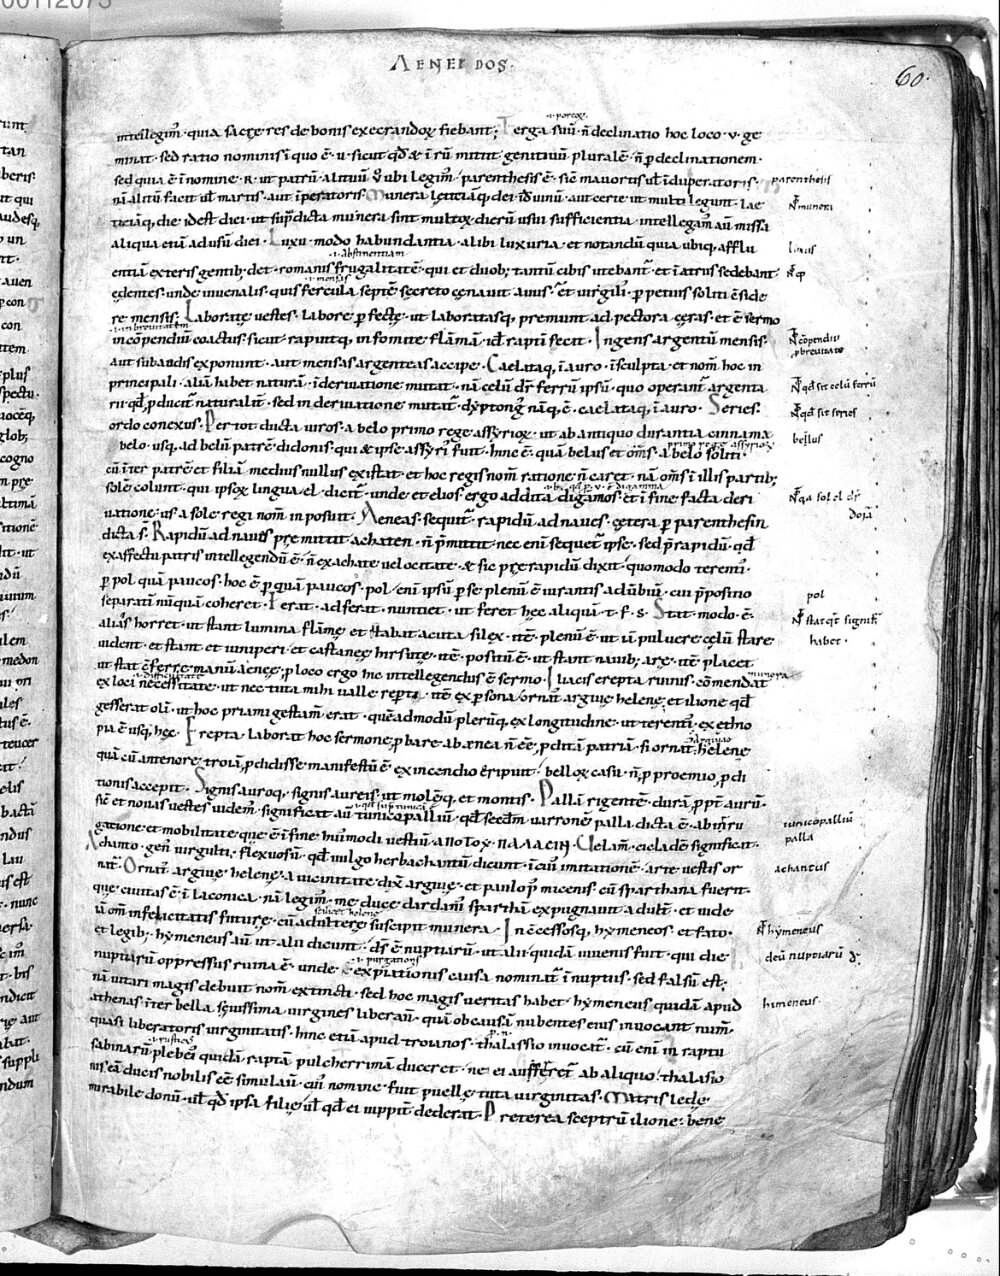 00112073
AENEIDOS
60.
intellegim̄. quia sacre res de bonis execrandoꝝ fiebant; Terga suū. n̄ declinatio hoc loco. v. ge
minat. sed ratio nominis ī quo ē. u. sicut qđ & ī rū mittit genitiuū pluralē. n̄ p declinationem.
sed quia ē ī nomine. R. ut patrū alituū
nā alitū facit ut martis. aut īperatoris. Munera letitiāq; dei id uinū. aut certe ut multi legunt. lae
titiāq; die. idest diei. ut sup̄dicta munera sint multoꝝ dierū usui sufficientia. intellegam̄ aū missa
aliqua etiā ad usū diei. Luxu. modo habundantia. alibi luxuria. et notandū quia ubiq; afflu
.i. abstinentiam
entiā exteris gentib; det. romanis frugalitatē. qui et duob; tantū cibis utebant̄. et ī atriis sedebant
.i. mensis
edentes. unde iuuenalis. quis fercula septē secreto cenauit auus. et uirgili'. p petuis soliti
re mensis. Laborate uestes. labore p fecte. ut laboratasq; premunt ad pectora ceras. et ē sermo
in cōpendiū coactus. sicut rapuitq; in fomite flāmā. id raptī fecit. Ingens argentū mensis.
aut subaudis exponunt. aut mensas argenteas accipe. Caelataq; ī auro. īsculpta. et nom̄ hoc in
principali. aliā habet naturā. ī deriuatione mutat. nā celū dr̄ ferrū ipsū. quo operant̄ argenta
rii. qđ p ducit̄ naturalit̄. sed in deriuatione mutat̄. dyptong' nāq; ē. caelataq; ī auro. Series.
ordo conexus. Per tot ducta uiros. a belo primo rege assyrioꝝ. ut ab antiquo durantia cinnama
primo rege assyrioꝝ
belo. usq; ad belū patrē didonis. qui & ipse assyri' fuit. hinc ē. quā belus et om̄s. a belo soliti.
cū īter patrē et filiā medius nullus existat. et hoc regis nom̄ ratione n̄ caret. nā om̄s ī illis partib;
solē colunt. qui ipsoꝝ lingua el. dicit̄. unde et elios. ergo addita digamos. et ī fine facta deri
uatione. us. a sole regi nom̄ in posuit. Aeneas. sequit̄. rapidū ad naues. cetera p parenthesin
dicta s̄. Rapidū ad nauis pre mittit achaten. n̄ p̄mittit. nec enī sequet̄ ipse. sed p̄rapidū. qđ
ex affectu patris intellegendū ē. n̄ ex achate uelocitate. & sic prerapidū dixit. quomodo terenti'.
p pol quā paucos. hoc ē p quā paucos. pol. enī ipsū p se plenū ē iurantis aduerbiū. cui p̄positio
separatī nūquā coheret. Ferat. adferat. nuntiet. ut feret hec aliquā. t. f. s. Stat. modo ē.
alias horret. ut stant lumina flāme. et stabat acuta silex. itē plenū ē. ut iā puluere celū stare
uident. et stant et iuniperi et castanee hirsute. itē. positū ē. ut stant nauib; are. itē placet
ut stat ē ferre manū. aenee. p loco ergo hic intellegendus ē sermo. Iliacis erepta ruinis. cōmendat
munera
ex loci necessitate. ut nec tuta mihi ualle reperti. itē ex p sona. ornat' argiue helene. et ilione qđ
gesserat olī. ut hoc priami gestam̄ erat. quēadmodū plerūq; ex longitudine. ut terenti'. ex ethio
pia ē usq; hec. Erepta. laborat hoc sermone p bare. ab aenea n̄ eē p ditā patriā. si ornat' helene
quā cū antenore troiā p didisse manifestū ē. ex incendio eripuit. belloꝝ casu. n̄ p proemio. p di
tionis accepit. Signis auroq; signis aureis. ut molēq; et montis. Pallā rigentē. durā. p p̄t aurū.
sic et nouas uestes uidem̄. significat aū tunicopalliū. qđ secdm̄ uarronē palla dicta ē. ab
gatione et mobilitate. que ē ī fine huīmodi uestiū. ΑΠΟΤΟΥ ΠΑΛΛΕΙΝ. uelam̄. cicladē significat.
Achanto. gen' uirgulti. flexuosū. qđ uulgo herbachantū dicunt. ī cui' imitationē. arte uestis or
nat̄. Ornat' argiue helene. a uicinitate dix̄ argiue. et paulo p' micenis. cū sparthana fuerit.
que ciuitas ē ī laconica. nā legim̄. me duce dardani' sparthā expugnauit adult̄. et uide
scilicet helene
ū om̄ infelicitatis future. cū adultere suscipit munera. In cēssosq; hymeneos. et fato.
et legib; hymeneus aū ut alii dicunt. ds̄ ē nuptiarū. ut alii. quidā iuuenis fuit. qui die
.i. purgationis
nuptiarū oppressus ruina ē. unde expiationis causa nominat̄ ī nuptiis. sed falsū est;
nā uitari magis debuit nom̄ extincti. sed hoc magis ueritas habet. hymeneus quidā apud
athenas. īter bella seuissima. uirgines liberau̅. quā ob causā nubentes eius inuocant num̄.
quasi liberatoris uirginitatis. hinc etiā apud troianos. thalassio inuocat̄. cū enī in raptu
.i. rusticus
sabinarū plebei' quidā raptam pulcherrimā duceret. ne ei aufferret̄ ab aliquo. thalasio
nis eā ducis nobilis eē simulau̅. cui' nomine fuit puelle tuta uirginitas. Matris lede.
mirabile donū. ut qđ ipsa filie. ut qđ ei iuppit̄ dederat. Preterea sceptrū ilione: bene
parenthesis
N̄ munera
luxus
N̄ q
N̄ cōpendiū
p breuitate
N̄ qđ sit celū ferrū
N̄ qđ sit series
bellus
N̄ qa sol el dr̄
pol
N̄ stat qt signifi
habet.
tunicopalliū
palla
achantus
N̄ hymeneus
deū nuptiarū
himeneus.